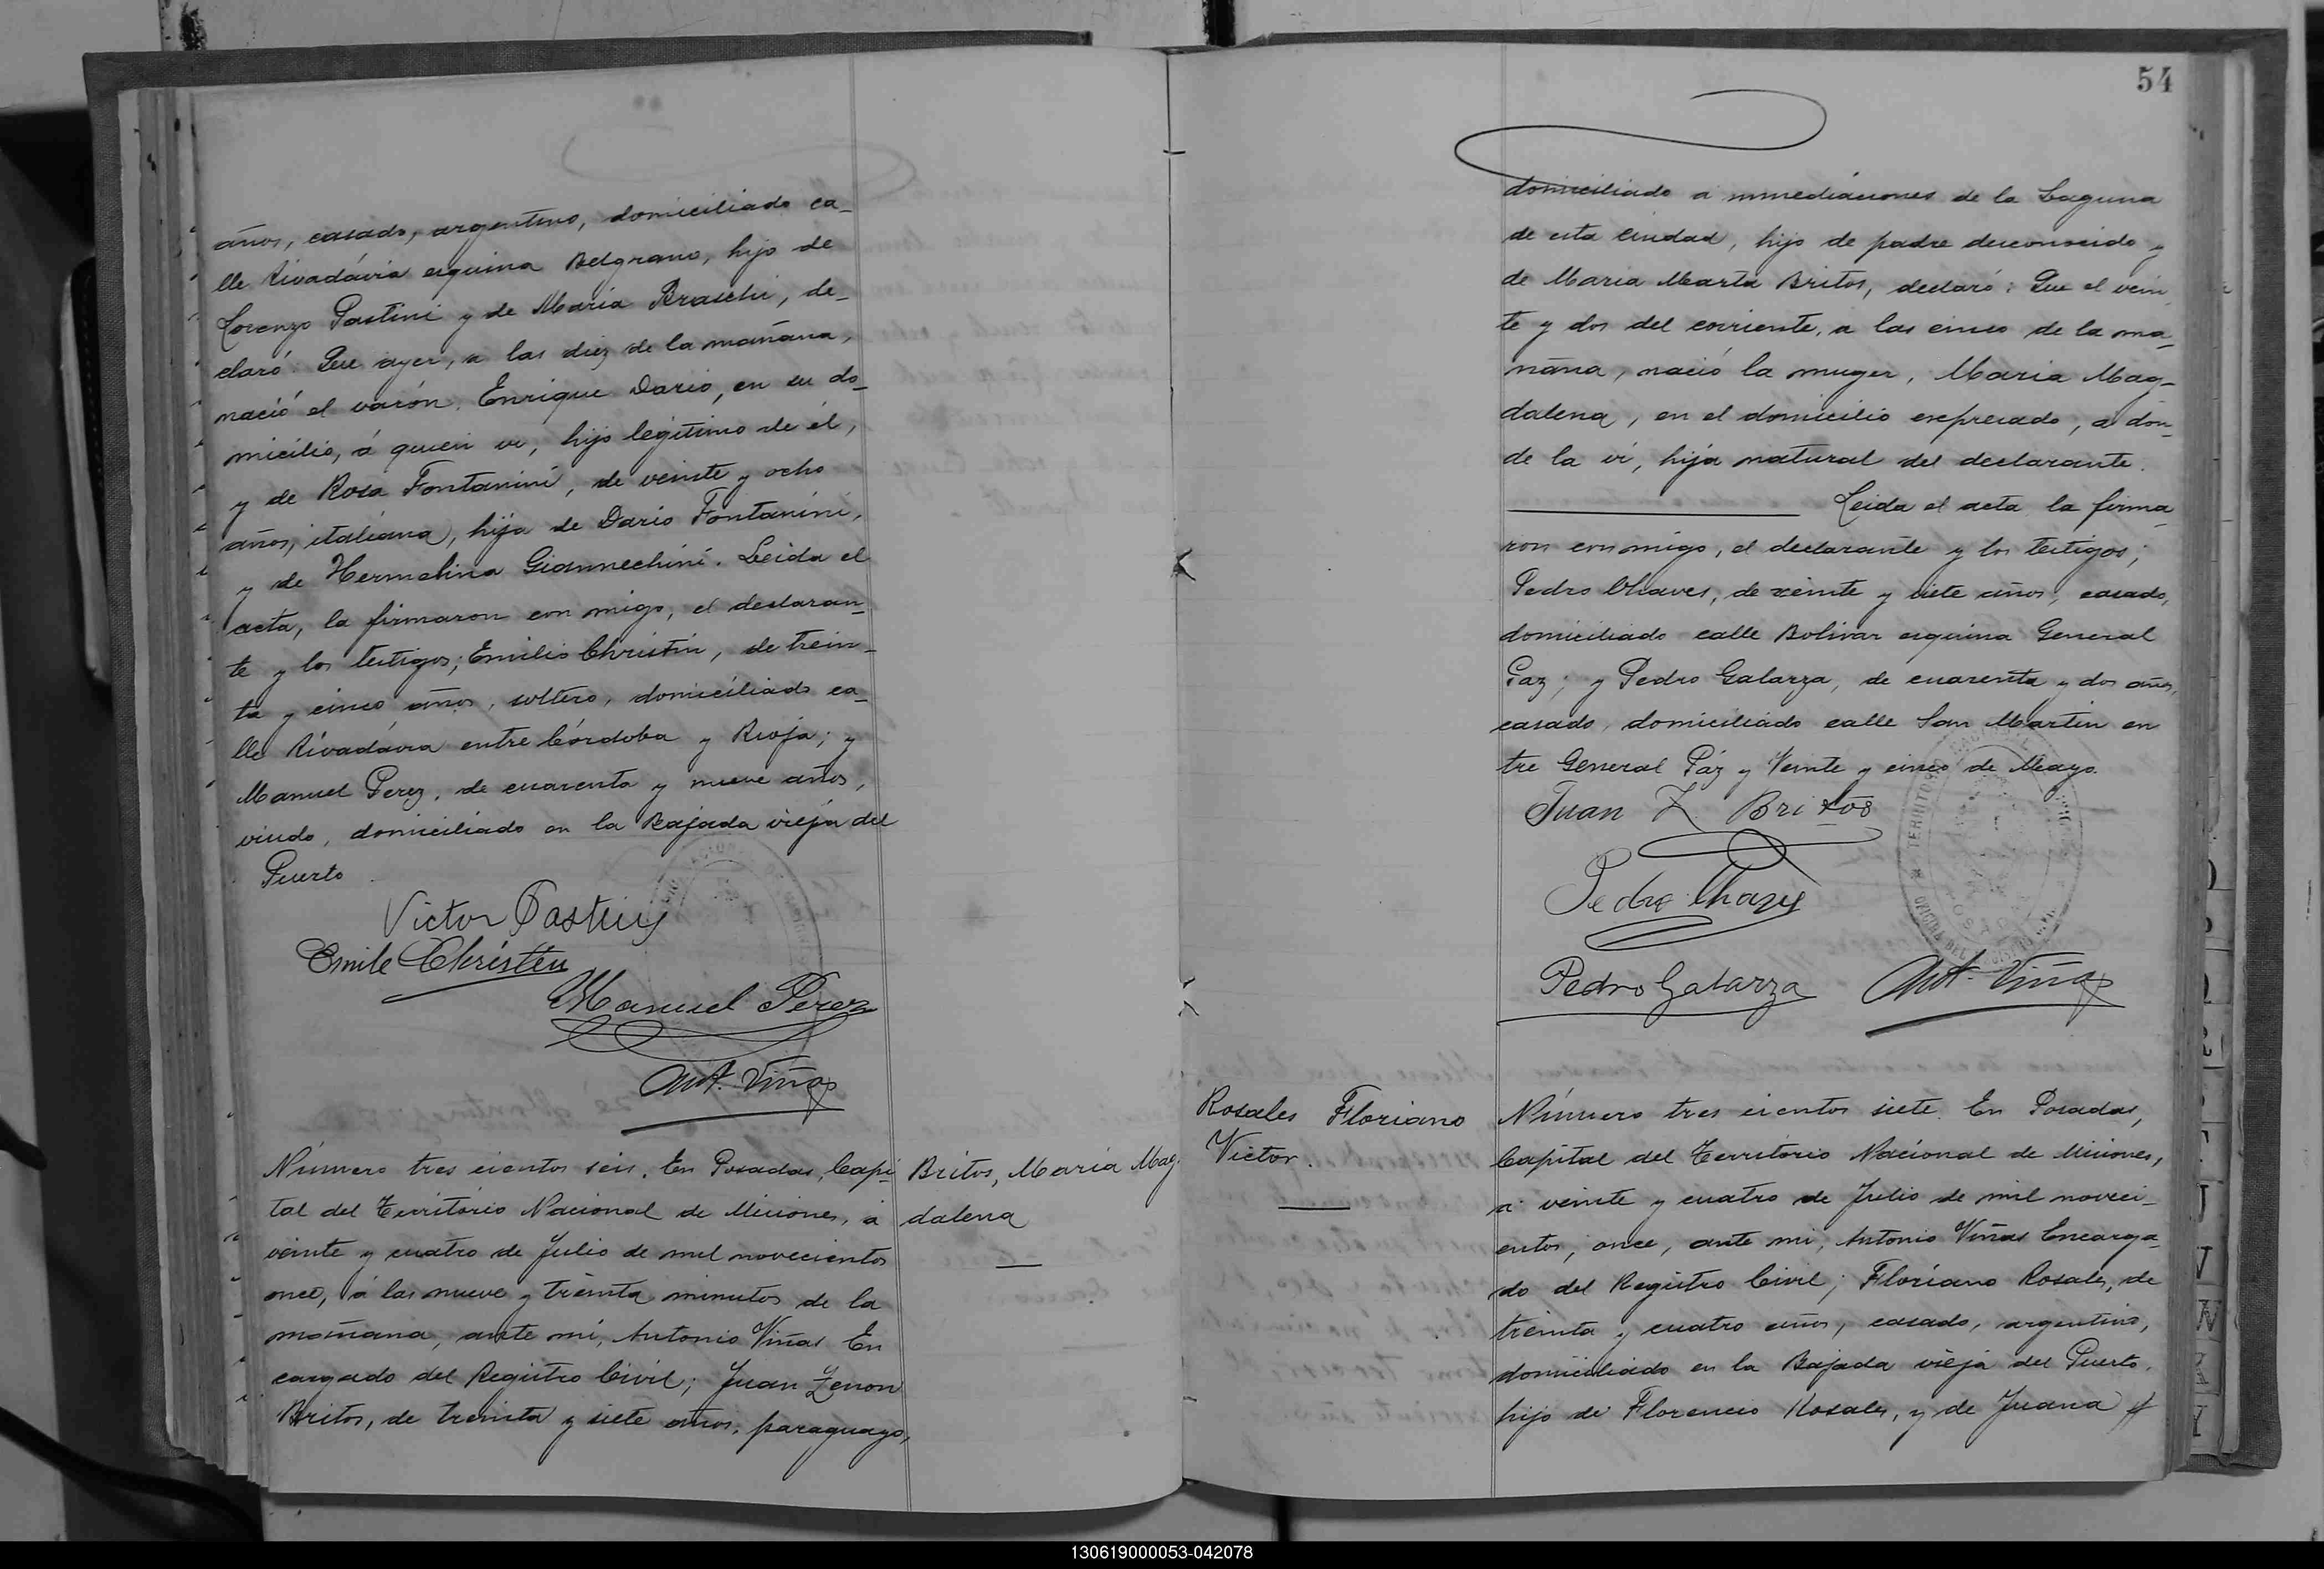 años, casado, argentino, domiciliado ca_
lle Rivadavia esquina Belgrano, hijo de
Lorenzo Pastini y de María Braschi, de_
claró: Que ayer, a las diez de la mañana,
nació el varón, Enrique Dario, en su do_
micilio, á quien vi, hijo legítimo de él,
y de Rosa Fontanini, de veinte y ocho
años, italiana, hija de Dario Fontanini,
y de Hermelina Giannechini. Leida el
acta, la firmaron con migo, el declaran_
te y los testigos; Emilio Christin, de trein_
ta y cinco años, soltero, domiciliado ca_
lle Rivadavia entre Córdoba y Rioja; y
Manuel Perez, de cuarenta y nueve años,
viudo, domiciliado en la Bajada vieja del
Puerto.
Victor Pastini
Emile Christen
Manuel Perez
Ant. Viñas
Número tres cientos seis. En Posadas, Capi_
tal del Territorio Nacional de Misiones, á
veinte y cuatro de Julio de mil novecientos
once, á las nueve y treinta minutos de la
mañana, ante mí, Antonio Viñas En
cargado del Registro Civil; Juan Zenon
Britos, de treinta y siete años, paraguayo,
Britos, María Mag_
dalena
54
domiciliado a inmediaciones de la Laguna
de esta ciudad, hijo de padre desconocido y
de Maria Marta Britos, declaró: Que el vein_
te y dos del corriente, a las cinco de la ma_
ñana, nació la muger, Maria Mag_
dalena, en el domicilio expresado, a don_
de la vi, hija natural del declarante.
Leida el acta la firma_
ron con migo, el declarante y los testigos;
Pedro Chaves, de veinte y siete años, casado,
domiciliado calle Bolivar esquina General
Paz; y Pedro Galarza, de cuarenta y dos años,
casado, domiciliado calle San Martin en
tre General Páz y Veinte y cinco de Mayo.
Juan Z. Britos
Pedro Chaves
Pedro Galarza Ant. Viñas
Rosales Floriano
Victor.
Número tres cientos siete. En Posadas,
Capital del Territorio Nacional de Misiones,
a veinte y cuatro de Julio de mil noveci_
entos, once, ante mi, Antonio Viñas Encarga_
do del Registro Civil; Floriano Rosales, de
treinta y cuatro años, casado, argentino,
domiciliado en la Bajada vieja del Puerto,
hijo de Florencio Rosales, y de Juana
130619000053-042078